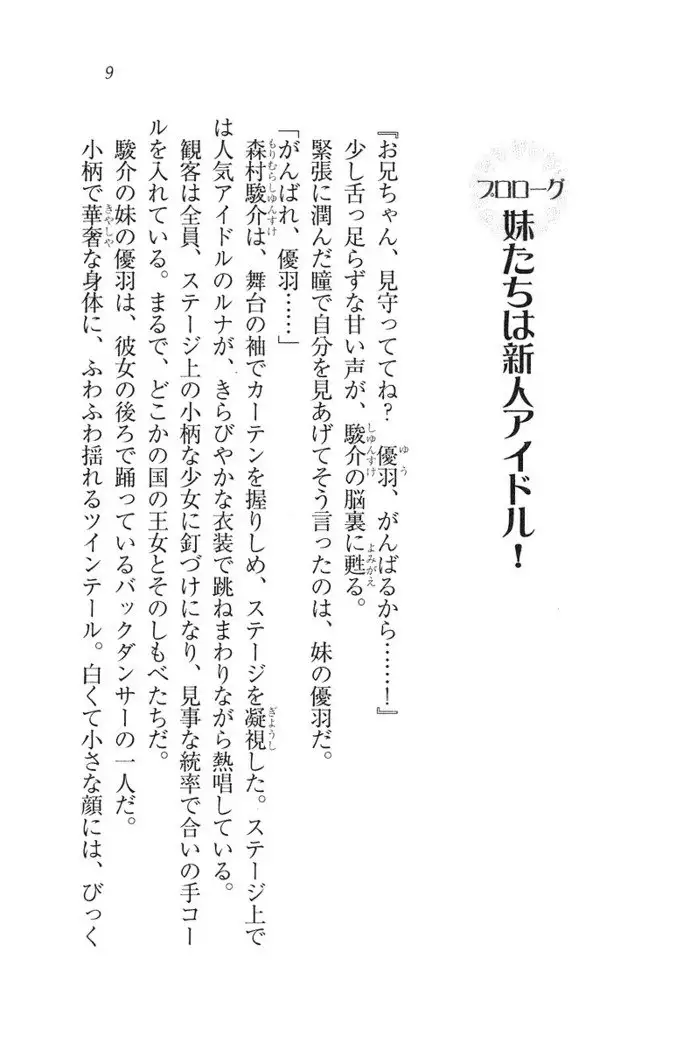 プロローグ
妹たちは新人アイドル！
『お兄ちゃん、見守っててね？　優羽、がんばるから……！』
少し舌っ足らずな甘い声が、駿介の脳裏に甦る。
緊張に潤んだ瞳で自分を見あげてそう言ったのは、妹の優羽だ。
「がんばれ、優羽……」
森村駿介は、舞台の袖でカーテンを握りしめ、ステージを凝視した。ステージ上で
は人気アイドルのルナが、きらびやかな衣装で跳ねまわりながら熱唱している。
観客は全員、ステージ上の小柄な少女に釘づけになり、見事な統率で合いの手コー
ルを入れている。まるで、どこかの国の王女とそのしもべたちだ。
駿介の妹の優羽は、彼女の後ろで踊っているバックダンサーの一人だ。
小柄で華奢な身体に、ふわふわ揺れるツインテール。白くて小さな顔には、びっく
9